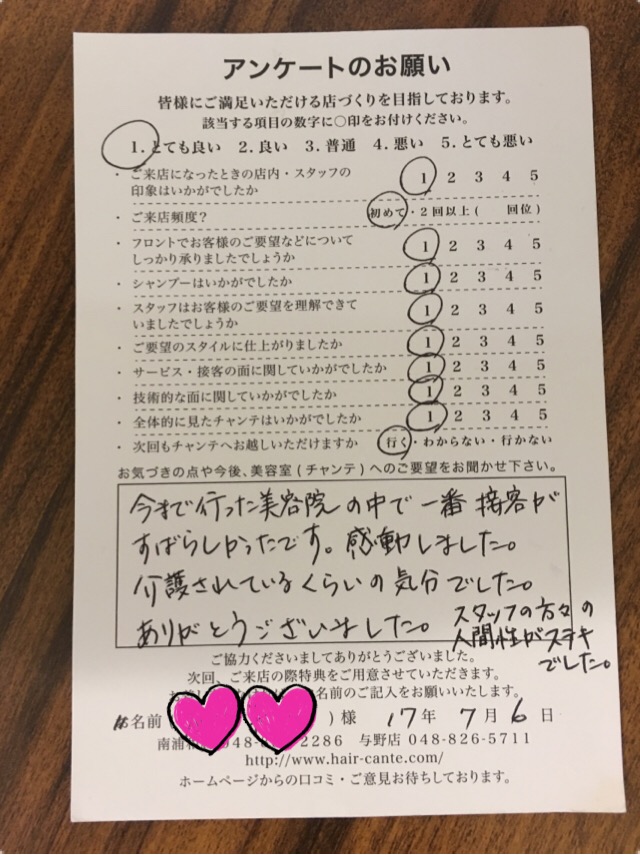 アンケートのお願い
皆様にご満足いただける店づくりを目指しております。
該当する項目の数字に○印をお付けください。
1. とても良い 2. 良い 3. 普通 4. 悪い 5. とても悪い
・ご来店になったときの店内・スタッフの
印象はいかがでしたか 1 2 3 4 5
・ご来店頻度? 初めて・2回以上( 回位)
・フロントでお客様のご要望などについて
しっかり承りましたでしょうか 1 2 3 4 5
・シャンプーはいかがでしたか 1 2 3 4 5
・スタッフはお客様のご要望を理解できて
いましたでしょうか 1 2 3 4 5
・ご要望のスタイルに仕上がりましたか 1 2 3 4 5
・サービス・接客の面に関していかがでしたか 1 2 3 4 5
・技術的な面に関していかがでしたか 1 2 3 4 5
・全体的に見たチャンテはいかがでしたか 1 2 3 4 5
・次回もチャンテへお越しいただけますか 行く・わからない・行かない
お気づきの点や今後、美容室(チャンテ)へのご要望をお聞かせ下さい。
今まで行った美容院の中で一番接客が
すばらしかったです。感動しました。
介護されているくらいの気分でした。
ありがとうございました。
スタッフの方々の
人間性がステキ
でした。
ご協力くださいましてありがとうございました。
次回、ご来店の際特典をご用意させていただきます。
名前のご記入をお願いいたします。
名前 )様 17年 7月 6日
南浦 048- 2286 与野店 048-826-5711
http://www.hair-cante.com/
ホームページからの口コミ・ご意見お待ちしております。